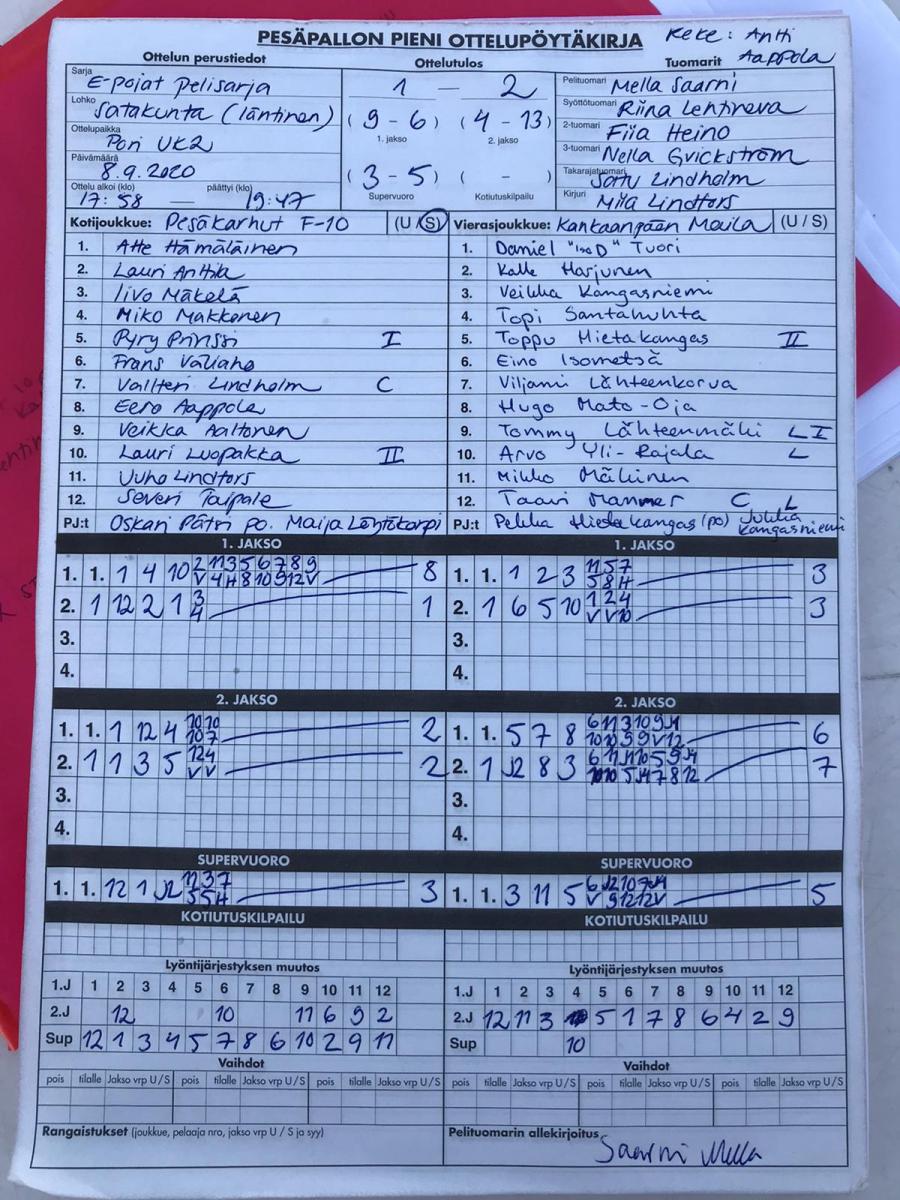 PESÄPALLON PIENI OTTELUPÖYTÄKIRJA Keke: Antti Aappola
Ottelun perustiedot Ottelutulos Tuomarit
Sarja E-pojat Pelisarja
Lohko Satakunta (läntinen)
Ottelupaikka Pori UK2
Päivämäärä 8.9.2020
Ottelu alkoi (klo) 17:58 — päättyi (klo) 19:47
1 — 2
(9 - 6) (4 - 13)
1. jakso 2. jakso
(3 - 5) ( - )
Supervuoro Kotiutuskilpailu
Pelituomari Mella Saarni
Syöttötuomari Riina Lehtineva
2-tuomari Fiia Heino
3-tuomari Nella Gvickström
Takarajatuomari Satu Lindholm
Kirjuri Mila Lindfors
Kotijoukkue: Pesäkarhut F-10 (U/S)
1. Atte Hämäläinen
2. Lauri Anttila
3. Iivo Mäkelä
4. Miko Makkonen
5. Pyry Prinssi I
6. Frans Väliaho
7. Valtteri Lindholm C
8. Eero Aappola
9. Veikka Aaltonen
10. Lauri Luopakka II
11. Juho Lindfors
12. Severi Taipale
PJ:t Oskari Pätri po. Maija Lähtökorpi
Vierasjoukkue: Kankaanpään Maila (U / S)
1. Daniel "IsoD" Tuori
2. Kalle Harjunen
3. Veikka Kangasniemi
4. Topi Santahuhta
5. Toppu Hietakangas II
6. Eino Isometsä
7. Viljami Lähteenkorva
8. Hugo Mato-Oja
9. Tommy Lähteenmäki L I
10. Arvo Yli-Rajala L
11. Mikko Mäkinen
12. Taavi Mammer C L
PJ:t Pekka Hietakangas (po) Jukka Kangasniemi
1. JAKSO
1. 1. 1 4 10 2 11 3 5 6 7 8 9 8
V 4 H 8 10 9 12 V
2. 1 12 2 1 3 1
4
3.
4.
1. JAKSO
1. 1. 1 2 3 11 5 7 3
5 8 H
2. 1 6 5 10 1 2 4 3
V V 10
3.
4.
2. JAKSO
1. 1. 1 12 4 10 10 2
10 7
2. 1 1 3 5 12 4 2
V V
3.
4.
2. JAKSO
1. 1. 5 7 8 6 11 3 10 9 J1 6
10 10 5 9 V 12
2. 1 J2 8 3 7
3.
4.
SUPERVUORO
1. 1. 12 1 J2 11 3 7 3
5 5 H
SUPERVUORO
1. 1. 3 11 5 6 J2 10 7 J1 5
V 9 12 12 V
KOTIUTUSKILPAILU
KOTIUTUSKILPAILU
Lyöntijärjestyksen muutos
1.J 1 2 3 4 5 6 7 8 9 10 11 12
2.J 12 10 11 6 9 2
Sup 12 1 3 4 5 7 8 6 10 2 9 11
Lyöntijärjestyksen muutos
1.J 1 2 3 4 5 6 7 8 9 10 11 12
2.J 12 11 3 5 1 7 8 6 4 2 9
Sup 10
Vaihdot
pois tilalle Jakso vrp U/S pois tilalle Jakso vrp U/S pois tilalle Jakso vrp U/S
Vaihdot
pois tilalle Jakso vrp U/S pois tilalle Jakso vrp U/S pois tilalle Jakso vrp U/S
Rangaistukset (joukkue, pelaaja nro, jakso vrp U / S ja syy)
Pelituomarin allekirjoitus Saarni Mella